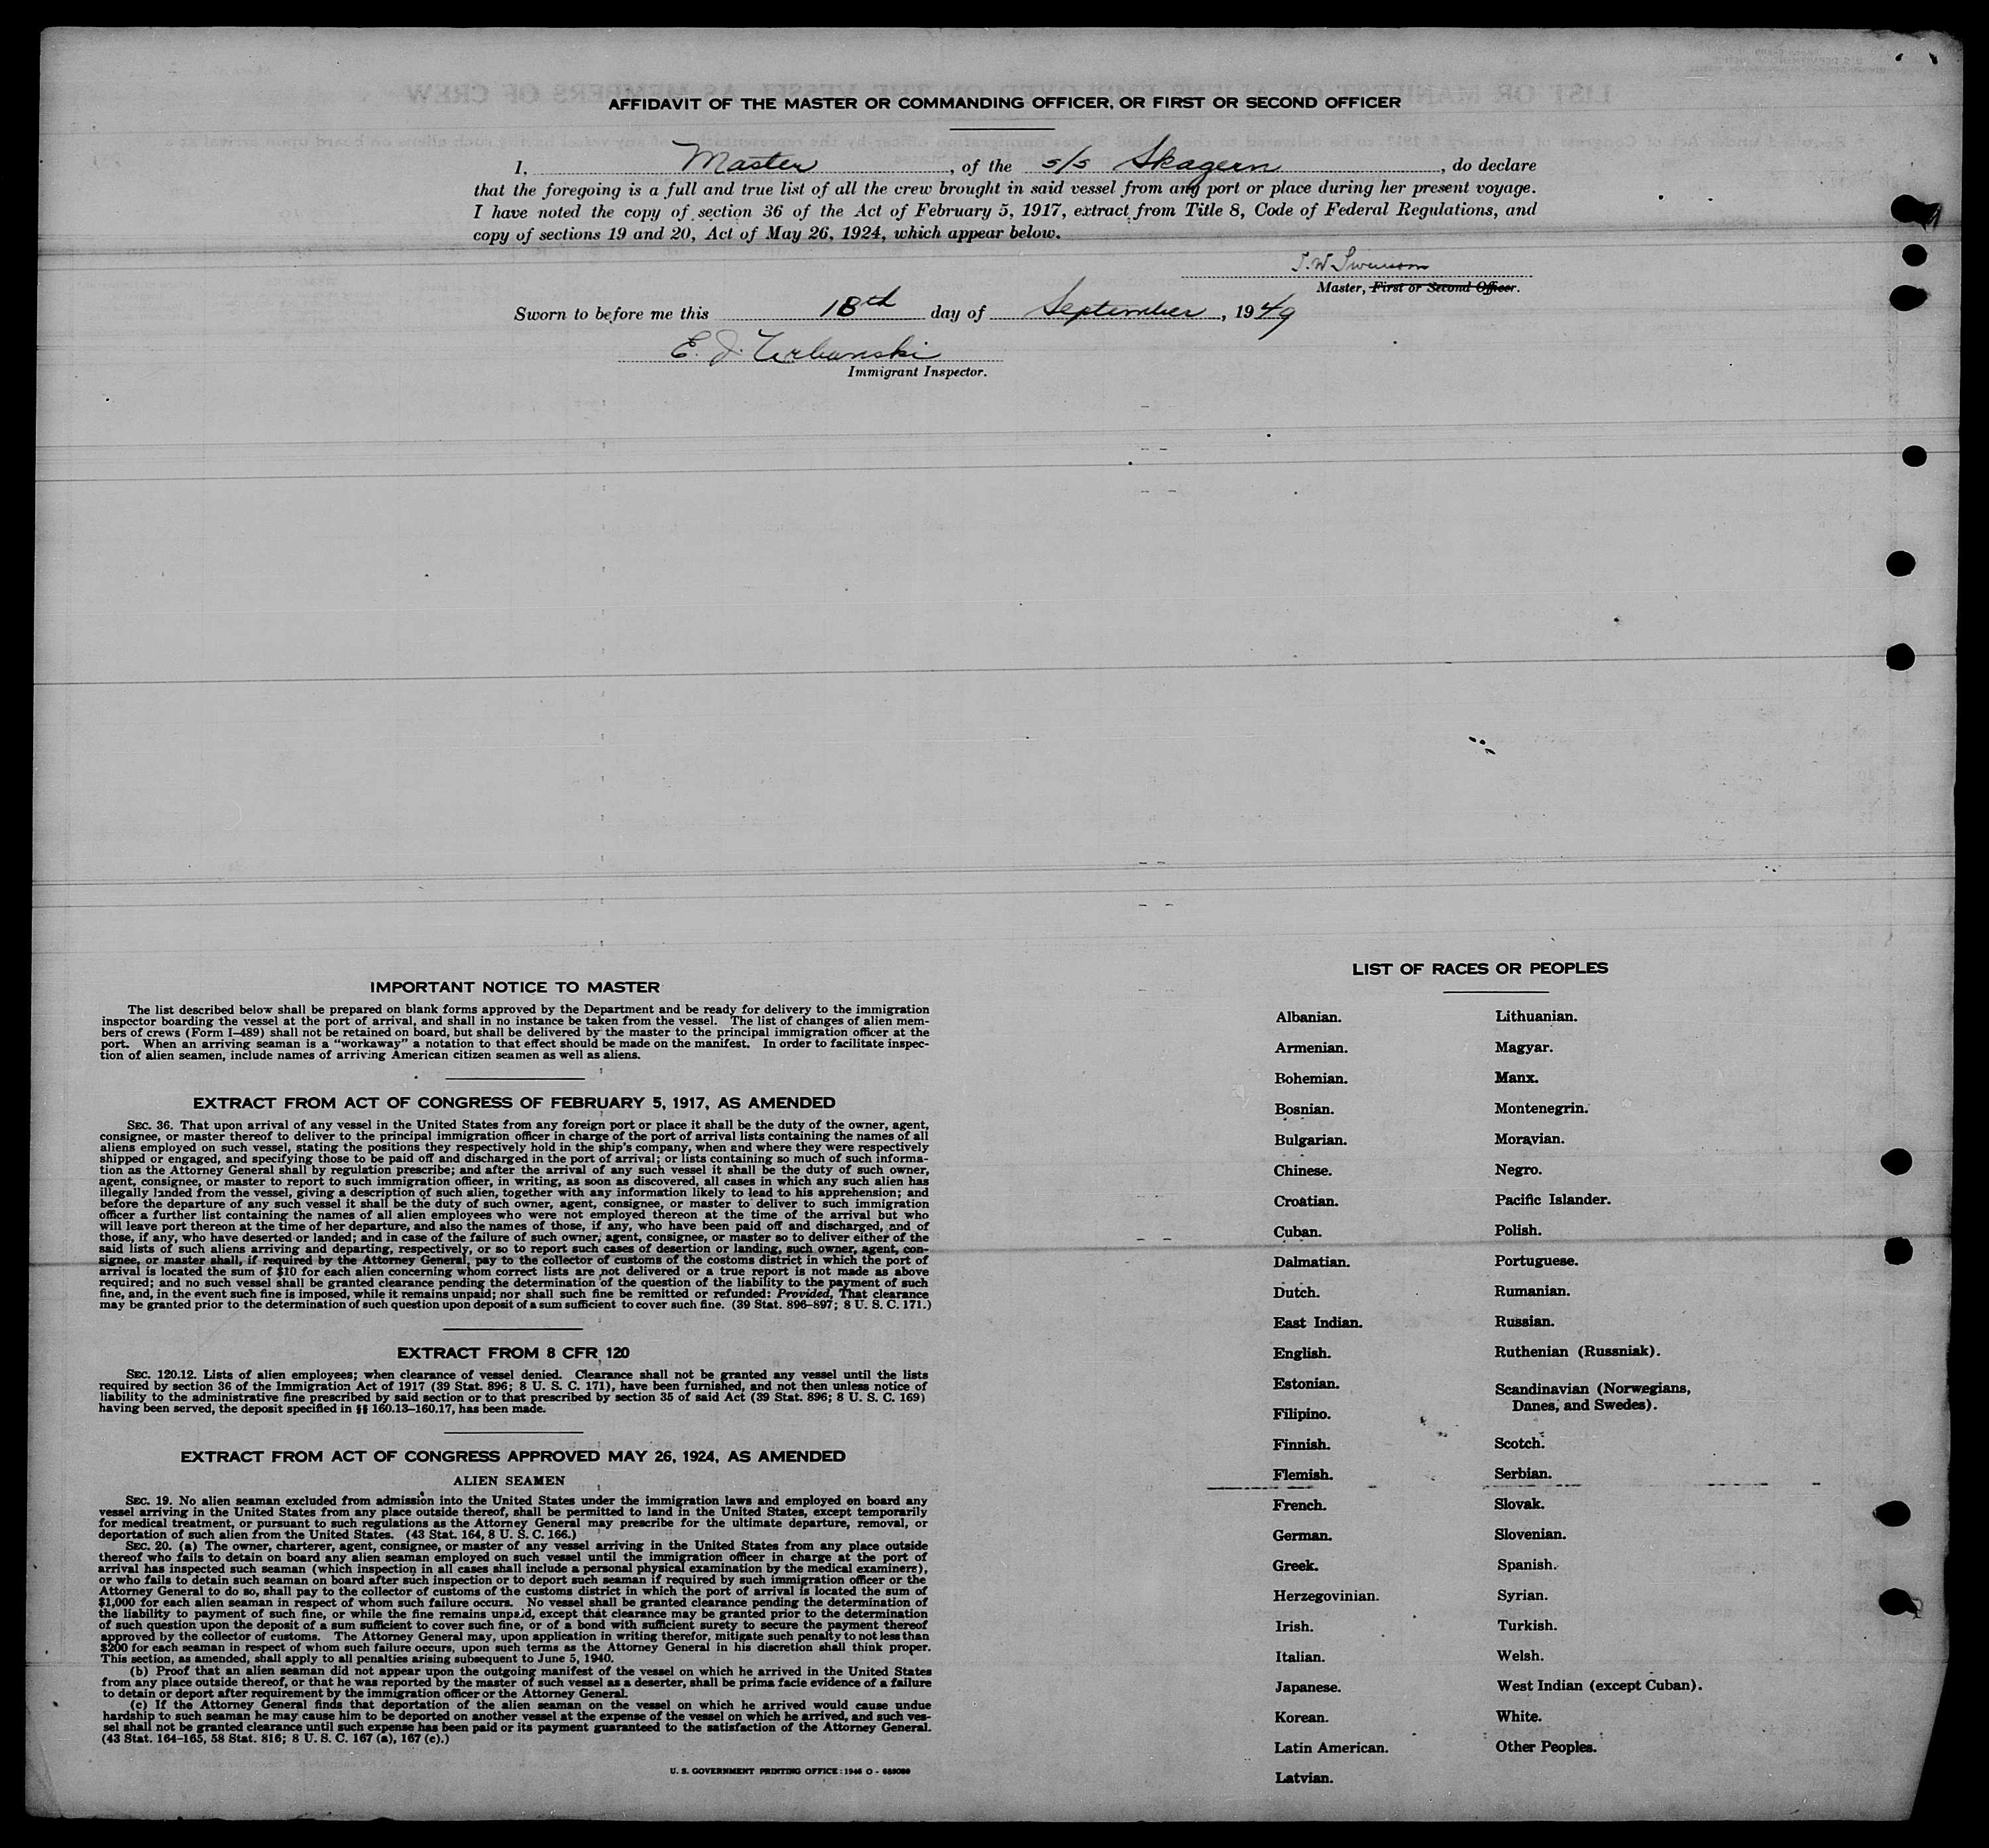 AFFIDAVIT OF THE MASTER OR COMMANDING OFFICER, OR FIRST OR SECOND OFFICER
I, Master, of the s/s Skagern, do declare
that the foregoing is a full and true list of all the crew brought in said vessel from any port or place during her present voyage.
I have noted the copy of section 36 of the Act of February 5, 1917, extract from Title 8, Code of Federal Regulations, and
copy of sections 19 and 20, Act of May 26, 1924, which appear below.
Master, First or Second Officer.
Sworn to before me this 18th day of September, 1949
E. J. Urbanski
Immigrant Inspector.
IMPORTANT NOTICE TO MASTER
The list described below shall be prepared on blank forms approved by the Department and be ready for delivery to the immigration
inspector boarding the vessel at the port of arrival, and shall in no instance be taken from the vessel. The list of changes of alien mem-
bers of crews (Form I-489) shall not be retained on board, but shall be delivered by the master to the principal immigration officer at the
port. When an arriving seaman is a "workaway" a notation to that effect should be made on the manifest. In order to facilitate inspec-
tion of alien seamen, include names of arriving American citizen seamen as well as aliens.
EXTRACT FROM ACT OF CONGRESS OF FEBRUARY 5, 1917, AS AMENDED
SEC. 36. That upon arrival of any vessel in the United States from any foreign port or place it shall be the duty of the owner, agent,
consignee, or master thereof to deliver to the principal immigration officer in charge of the port of arrival lists containing the names of all
aliens employed on such vessel, stating the positions they respectively hold in the ship's company, when and where they were respectively
shipped or engaged, and specifying those to be paid off and discharged in the port of arrival; or lists containing so much of such informa-
tion as the Attorney General shall by regulation prescribe; and after the arrival of any such vessel it shall be the duty of such owner,
agent, consignee, or master to report to such immigration officer, in writing, as soon as discovered, all cases in which any such alien has
illegally landed from the vessel, giving a description of such alien, together with any information likely to lead to his apprehension; and
before the departure of any such vessel it shall be the duty of such owner, agent, consignee, or master to deliver to such immigration
officer a further list containing the names of all alien employees who were not employed thereon at the time of the arrival but who
will leave port thereon at the time of her departure, and also the names of those, if any, who have been paid off and discharged, and of
those, if any, who have deserted or landed; and in case of the failure of such owner, agent, consignee, or master so to deliver either of the
said lists of such aliens arriving and departing, respectively, or so to report such cases of desertion or landing, such owner, agent, con-
signee, or master shall, if required by the Attorney General, pay to the collector of customs of the costoms district in which the port of
arrival is located the sum of $10 for each alien concerning whom correct lists are not delivered or a true report is not made as above
required; and no such vessel shall be granted clearance pending the determination of the question of the liability to the payment of such
fine, and, in the event such fine is imposed, while it remains unpaid; nor shall such fine be remitted or refunded: Provided, That clearance
may be granted prior to the determination of such question upon deposit of a sum sufficient to cover such fine. (39 Stat. 896-897; 8 U. S. C. 171.)
EXTRACT FROM 8 CFR 120
SEC. 120.12. Lists of alien employees; when clearance of vessel denied. Clearance shall not be granted any vessel until the lists
required by section 36 of the Immigration Act of 1917 (39 Stat. 896; 8 U. S. C. 171), have been furnished, and not then unless notice of
liability to the administrative fine prescribed by said section or to that prescribed by section 35 of said Act (39 Stat. 896; 8 U. S. C. 169)
having been served, the deposit specified in §§ 160.13-160.17, has been made.
EXTRACT FROM ACT OF CONGRESS APPROVED MAY 26, 1924, AS AMENDED
ALIEN SEAMEN
SEC. 19. No alien seaman excluded from admission into the United States under the immigration laws and employed on board any
vessel arriving in the United States from any place outside thereof, shall be permitted to land in the United States, except temporarily
for medical treatment, or pursuant to such regulations as the Attorney General may prescribe for the ultimate departure, removal, or
deportation of such alien from the United States. (43 Stat. 164, 8 U. S. C. 166.)
SEC. 20. (a) The owner, charterer, agent, consignee, or master of any vessel arriving in the United States from any place outside
thereof who fails to detain on board any alien seaman employed on such vessel until the immigration officer in charge at the port of
arrival has inspected such seaman (which inspection in all cases shall include a personal physical examination by the medical examiners),
or who fails to detain such seaman on board after such inspection or to deport such seaman if required by such immigration officer or the
Attorney General to do so, shall pay to the collector of customs of the customs district in which the port of arrival is located the sum of
$1,000 for each alien seaman in respect of whom such failure occurs. No vessel shall be granted clearance pending the determination of
the liability to payment of such fine, or while the fine remains unpaid, except that clearance may be granted prior to the determination
of such question upon the deposit of a sum sufficient to cover such fine, or of a bond with sufficient surety to secure the payment thereof
approved by the collector of customs. The Attorney General may, upon application in writing therefor, mitigate such penalty to not less than
$200 for each seaman in respect of whom such failure occurs, upon such terms as the Attorney General in his discretion shall think proper.
This section, as amended, shall apply to all penalties arising subsequent to June 5, 1940.
(b) Proof that an alien seaman did not appear upon the outgoing manifest of the vessel on which he arrived in the United States
from any place outside thereof, or that he was reported by the master of such vessel as a deserter, shall be prima facie evidence of a failure
to detain or deport after requirement by the immigration officer or the Attorney General.
(c) If the Attorney General finds that deportation of the alien seaman on the vessel on which he arrived would cause undue
hardship to such seaman he may cause him to be deported on another vessel at the expense of the vessel on which he arrived, and such ves-
sel shall not be granted clearance until such expense has been paid or its payment guaranteed to the satisfaction of the Attorney General.
(43 Stat. 164-165, 58 Stat. 816; 8 U. S. C. 167 (a), 167 (c).)
U. S. GOVERNMENT PRINTING OFFICE : 1946 O -
LIST OF RACES OR PEOPLES
Albanian.
Armenian.
Bohemian.
Bosnian.
Bulgarian.
Chinese.
Croatian.
Cuban.
Dalmatian.
Dutch.
East Indian.
English.
Estonian.
Filipino.
Finnish.
Flemish.
French.
German.
Greek.
Herzegovinian.
Irish.
Italian.
Japanese.
Korean.
Latin American.
Latvian.
Lithuanian.
Magyar.
Manx.
Montenegrin.
Moravian.
Negro.
Pacific Islander.
Polish.
Portuguese.
Rumanian.
Russian.
Ruthenian (Russniak).
Scandinavian (Norwegians,
Danes, and Swedes).
Scotch.
Serbian.
Slovak.
Slovenian.
Spanish.
Syrian.
Turkish.
Welsh.
West Indian (except Cuban).
White.
Other Peoples.